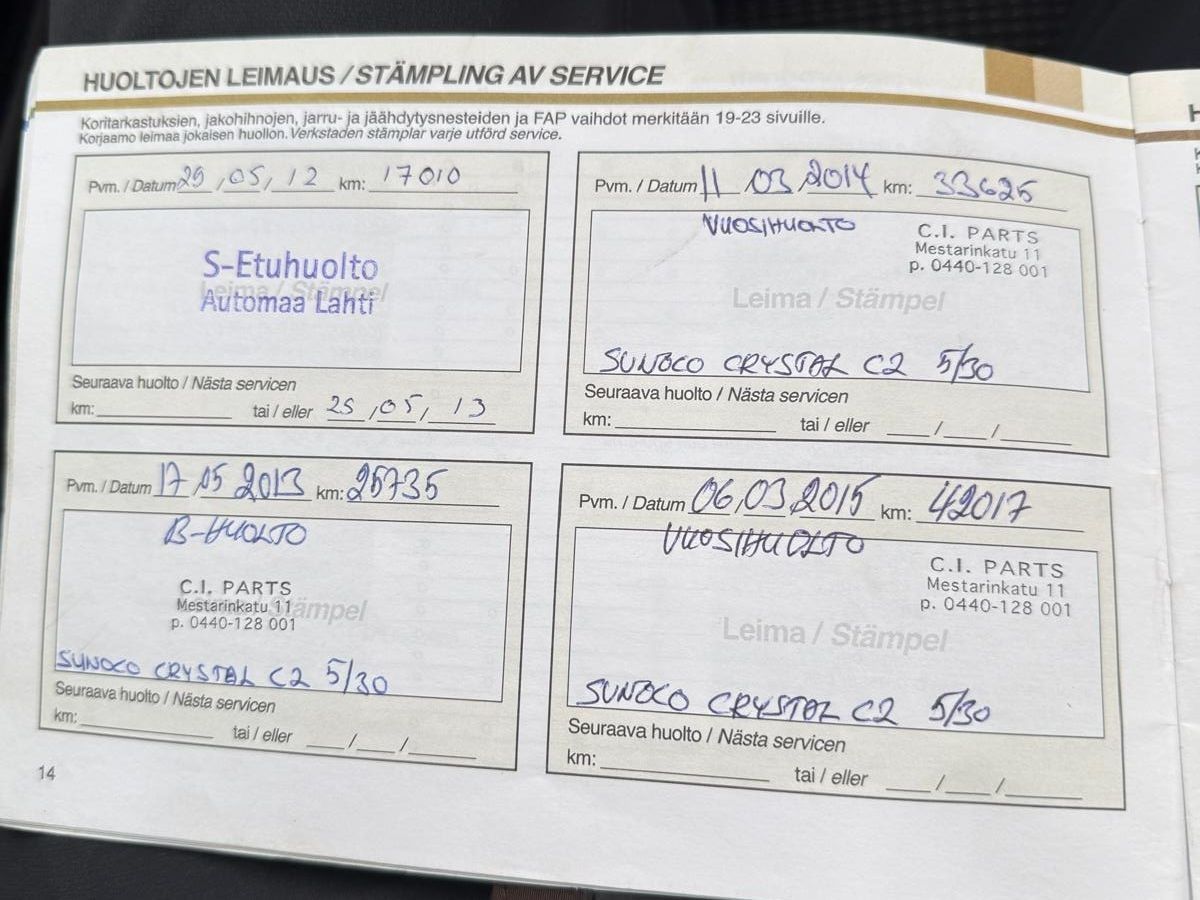 HUOLTOJEN LEIMAUS / STÄMPLING AV SERVICE
Koritarkastuksien, jakohihnojen, jarru- ja jäähdytysnesteiden ja FAP vaihdot merkitään 19-23 sivuille.
Korjaamo leimaa jokaisen huollon. Verkstaden stämplar varje utförd service.
Pvm. / Datum 29, 05, 12 km: 17010
S-Etuhuolto
Leima / Stämpel
Automaa Lahti
Seuraava huolto / Nästa servicen
km: tai / eller 25, 05, 13
Pvm. / Datum 17, 05 2013 km: 25735
B-HUOLTO
C.I. PARTS
Mestarinkatu 11
Stämpel
p. 0440-128 001
SUNOCO CRYSTAL C2 5/30
Seuraava huolto / Nästa servicen
km: tai / eller / /
14
Pvm. / Datum 11 .03 .2014 km: 33625
VUOSIHUOLTO
C.I. PARTS
Mestarinkatu 11
p. 0440-128 001
Leima / Stämpel
SUNOCO CRYSTAL C2 5/30
Seuraava huolto / Nästa servicen
km: tai / eller / /
Pvm. / Datum 06.03.2015 km: 42017
VUOSIHUOLTO
C.I. PARTS
Mestarinkatu 11
p. 0440-128 001
Leima / Stämpel
SUNOCO CRYSTAL C2 5/30
Seuraava huolto / Nästa servicen
km: tai / eller / /